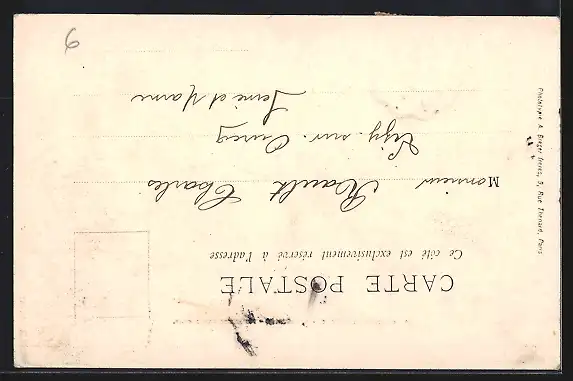 CARTE POSTALE
Ce côté est exclusivement réservé à l'adresse
Monsieur Rault Charles
Lizy-sur-Ourcq
Seine et Marne
Phototypie A. Berger frères, 9, Rue Thénard, Paris
9